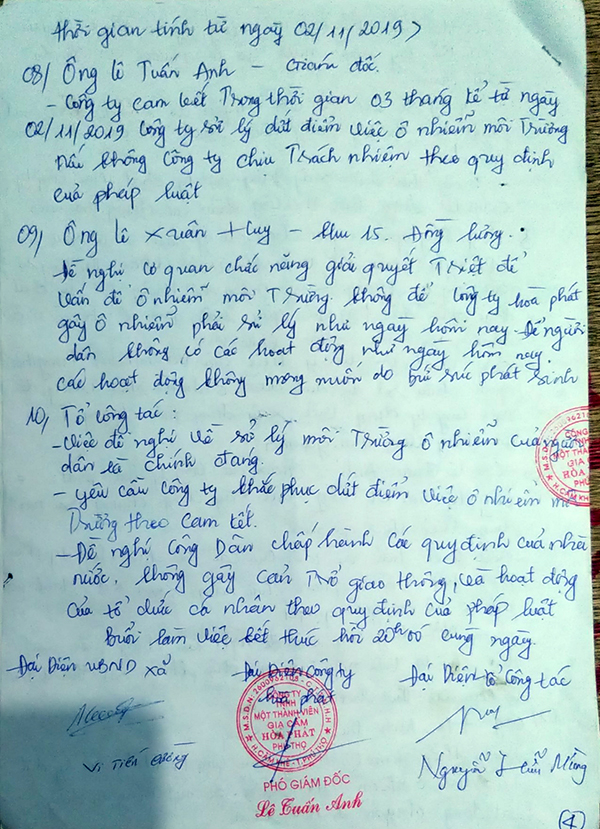 thời gian tính từ ngày 02/11/2019>
08/ Ông Lê Tuấn Anh – Giám đốc.
- Công ty cam kết Trong thời gian 03 tháng kể từ ngày
02/11/2019 Công ty sử lý dứt điểm việc ô nhiễm môi Trường
nếu không Công ty chịu Trách nhiệm theo quy định
của pháp luật
09/ Ông Lê Xuân – Khu 15. Đồng Lương.
Đề nghị cơ quan chức năng giải quyết Triệt để
vấn đề ô nhiễm môi Trường. không để Công ty hòa phát
gây ô nhiễm phải sử lý như ngày hôm nay. Để người
dân không có các hoạt động như ngày hôm nay.
các hoạt động không mong muốn do bức súc phát sinh
10, Tổ công tác:
- Việc đề nghị về sử lý môi Trường ô nhiễm của người
dân là chính đang.
- yêu cầu Công ty khắc phục dứt điểm việc ô nhiễm mô
Trường theo Cam kết.
- Đề nghị Công Dân chấp hành các quy định của nhà
nước, không gây cản Trở giao thông, và hoạt động
của tổ chức cá nhân theo quy định của pháp luật
Buổi làm việc kết thúc hồi 20h00 cùng ngày.
Đại Diện UBND xã Đại Diện Công ty Đại Diện Tổ Công tác
hòa phát
M.S.D.N: 2600962108
CÔNG TY
TNHH
MỘT THÀNH VIÊN
GIA CẦM
HÒA PHÁT
PHÚ THỌ
H.CẨM KHÊ - T.PHÚ THỌ
Vi Tiến
PHÓ GIÁM ĐỐC
Lê Tuấn Anh
Nguyễn Hữu